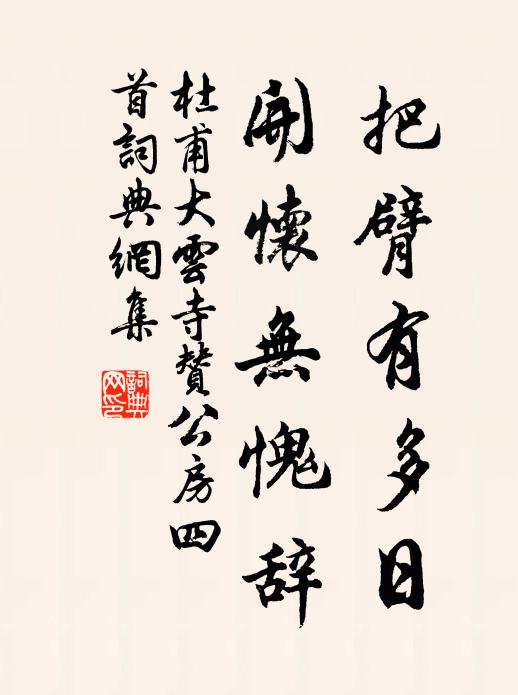 把臂有多日
開懷無愧辞
杜甫大雲寺贊公房四
首詞典網集
詞典
网印